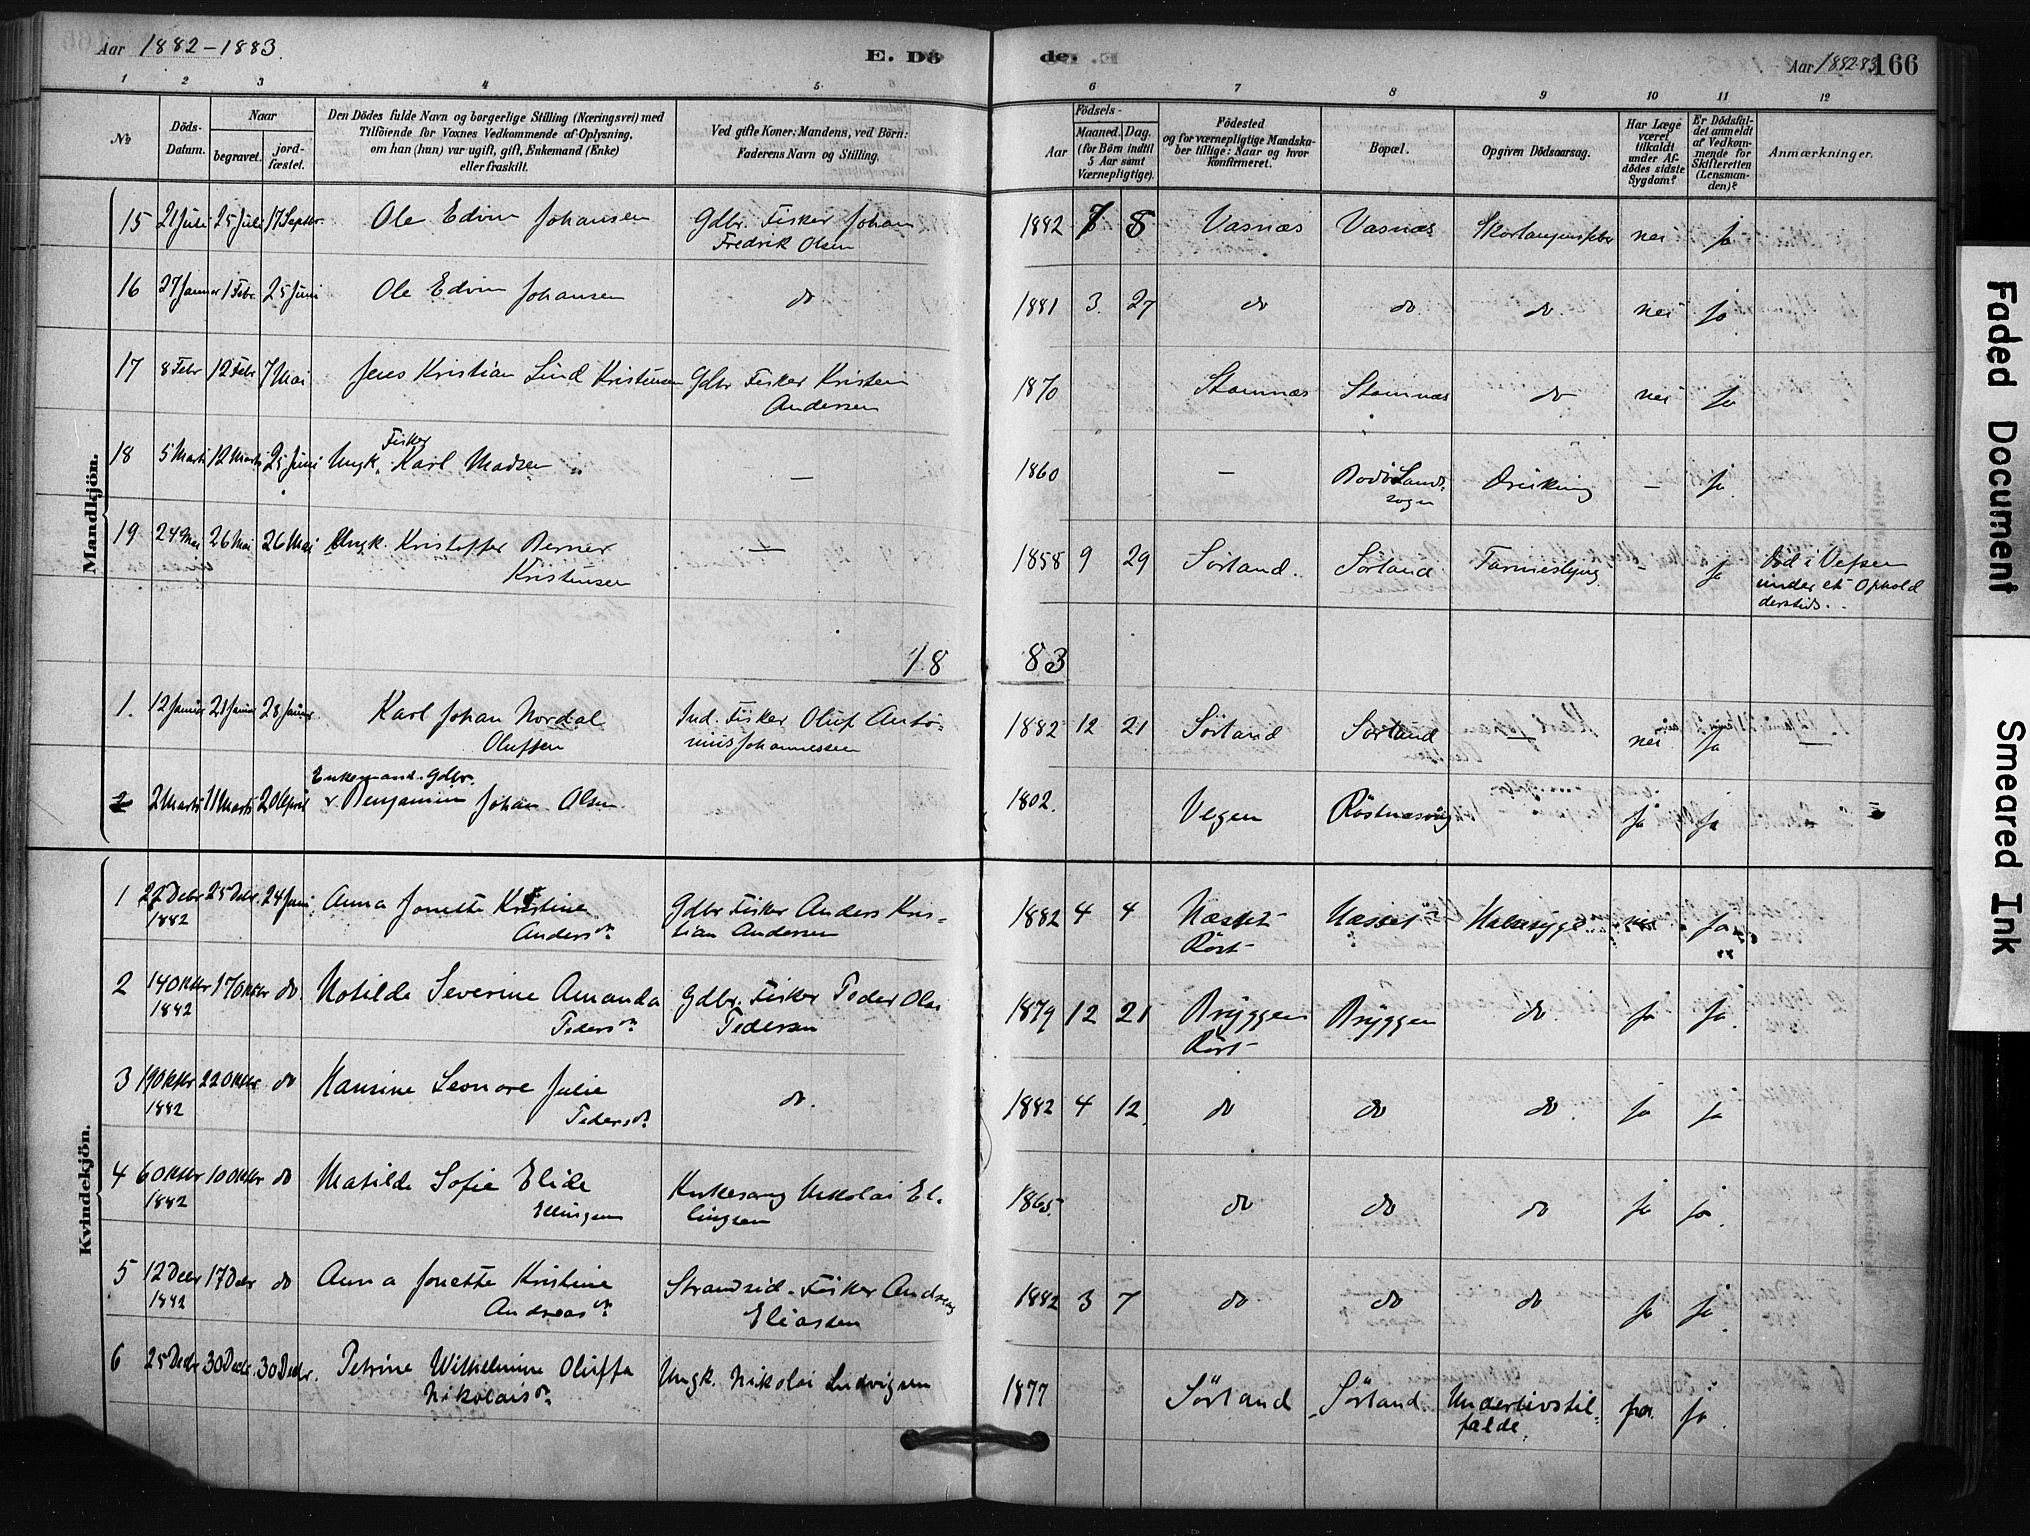 Aar 1882-1883.
E. Dö
de.
Aar 1882-83
166
1 2 3 4 5 6 7 8 9 10 11 12
No
Döds-Datum.
Naar
begravet.
jord-fæstet.
Den Dödes fulde Navn og borgerlige Stilling (Næringsvei) med
Tilföiende for Voxnes Vedkommende af Oplysning,
om han (hun) var ugift, gift, Enkemand (Enke)
eller fraskilt.
Ved gifte Koner: Mandens, ved Börn:
Faderens Navn og Stilling.
Födsels-
Aar
Maaned. Dag.
(for Börn indtil
5 Aar samt
Værnepligtige).
Födested
og for værnepligtige Mandska-
ber tillige: Naar og hvor
konfirmeret.
Bopæl.
Opgiven Dödsaarsag.
Har Læge
været
tilkaldt
under Af-
dödes sidste
Sygdom?
Er Dödsfal-
det anmeldt
af Vedkom-
mende for
Skifteretten
(Lensman-
den)?
Anmærkninger.
Mandkjön.
15 21 Juli 25 Juli 17 Septbr. Ole Edvin Johansen Gdbr. Fisker Johan 1882 7 8 Vasnæs Vasnæs nei ja
Fredrik Olsen
16 27 Januar 1 Febr. 25 Juni Ole Edvin Johansen do 1881 3. 27 do do. do. nei ja
17 8 Febr 12 Febr 7 Mai Jens Kristian Lind Kristensen Gdbr. Fisker Kristen 1870 Stamnæs Stamnæs do nei ja
Andersen
Fisker
18 5 Marts 12 Marts 25 Juni Ungk. Karl Madsen — 1860 — Bodö Lands- Drukning — ja
sogn
19 24 Mai 26 Mai 26 Mai Ungk. Kristoffer Berner — 1858 9 29 Sörland. Sörland - ja Död i Vefsen
Kristensen under et Ophold
dersteds.
18 83
1. 12 Januar 21 Januar 28 Januar Karl Johan Nordal Ind. Fisker Oluf Anto- 1882 12 21 Sörland Sörland — nei ja —
Olufsen nius Johannessen
Enkemand. Gdbr.
2 2 Marts 11 Marts 20 April Benjamin Johan Olsen 1802. Vegen Röstnæsvåg ja ja
Kvindekjön.
1 22 Decbr 25 Decbr. 24 Juni Anna Jonette Kristine Gdbr Fisker Anders Kris- 1882 4 4 Næsset Næsset Halssyge nei ja
1882 Andersdr. tian Andersen Röst
2 14 Oktbr 17 Oktbr do Matilde Severine Amanda Gdbr. Fisker Peder Olai 1879 12 21 Bryggen Bryggen do. ja ja.
1882 Pedersdr. Pedersen Röst
3 19 Oktbr 22 Oktbr do Hansine Leonore Julie do. 1882 4 12 do do do. ja ja
1882 Pedersdr.
4 6 Oktbr 10 Oktbr do Matilde Sofie Elide Kirkesang Nikolai El- 1865. do do do ja ja.
1882 Ellingsen lingsen
5 12 Decbr 17 Decbr do Anna Jonette Kristine Strandsid. Fisker Andreas 1882 3 7 do do do ja ja
1882 Andreasdr. Eliassen
6 25 Decbr 30 Decbr. 30 Decbr. Petrine Wilhelmine Oluffa Ungk. Nikolai Ludvigsen 1877 Sörland Sörland Underlivstil- ja
Nikolaisdr. fælde.
Faded Document
Smeared Ink